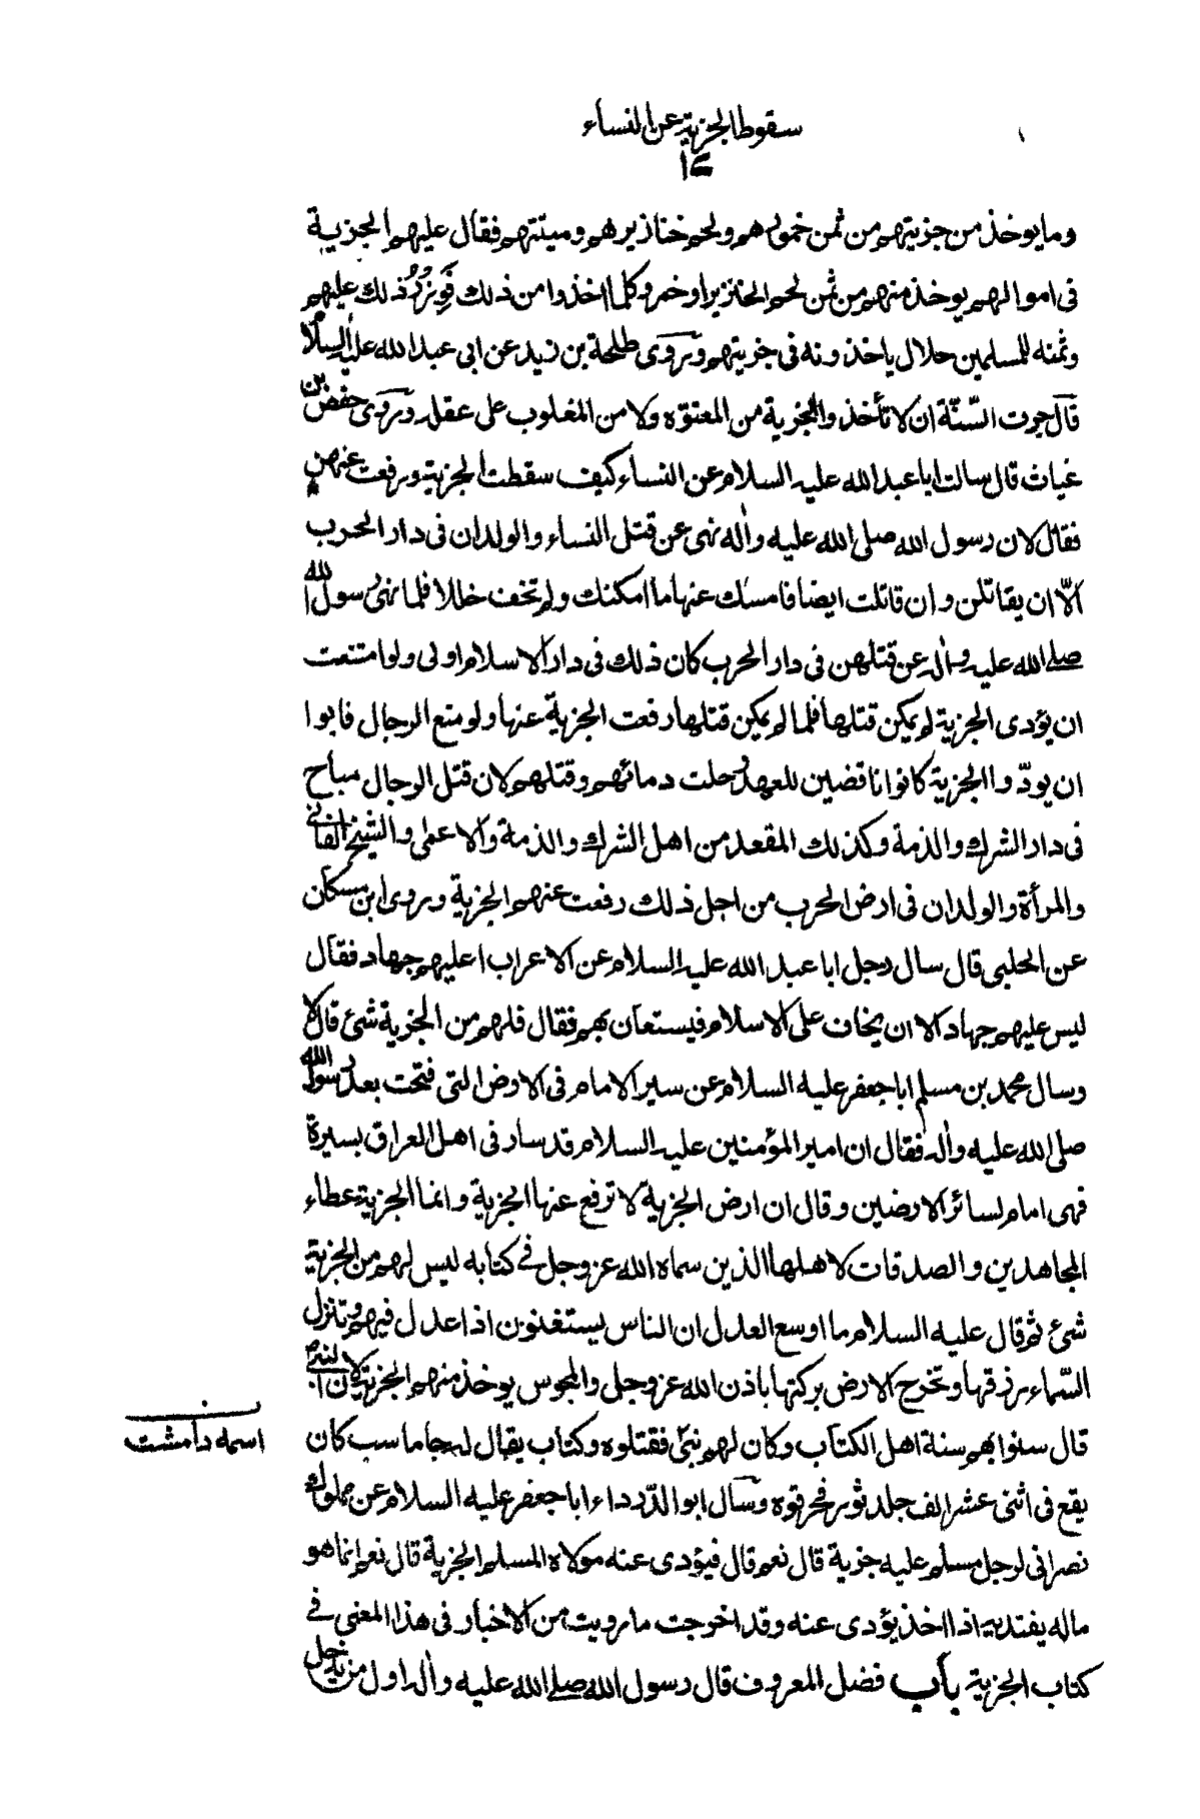 سقوط الجزية عن النساء
وما يوخذ من جزيتهم من ثمن خمورهم ولحم خنازيرهم وميتتهم فقال عليهم الجزية
فى اموالهم يوخذ منهم من ثمن لحم الخنزير او خمر وكلما اخذوا من ذلك فَوِزْرُ ذلك عليهم
وثمنه للمسلمين حلال ياخذونه فى جزيتهم وروى طلحة بن زيد عن ابى عبد الله عليه السلام
قال جرت السّنّة ان لا تأخذوا الجزية من المعتوّه ولا من المغلوب على عقله وروى حفص بن
غياث قال سالت ابا عبد الله عليه السلام عن النساء كيف سقطت الجزية ورفعت عنهن
فقال لان رسول الله صلى الله عليه واله نهى عن قتل النساء والولدان فى دار الحرب
الّا ان يقاتلن وان قاتلت ايضا فامسك عنها ما امكنك ولم تخف خللا فلما نهى رسول الله
صلى الله عليه واله عن قتلهن فى دار الحرب كان ذلك فى دار الاسلام اولى ولو امتنعت
ان يؤدى الجزية لم يمكن قتلها فلما لم يمكن قتلها رفعت الجزية عنها ولو منع الرجال فابوا
ان يودّوا الجزية كانوا ناقضين للعهد وحلت دمائهم وقتلهم لان قتل الرجال مباح
فى دار الشرك والذمة وكذلك المقعد من اهل الشرك والذمة والاعمى والشيخ الفانى
والمرأة والولدان فى ارض الحرب من اجل ذلك رفعت عنهم الجزية وروى ابن مسكان
عن الحلبى قال سال رجل ابا عبد الله عليه السلام عن الاعراب اعليهم جهاد فقال
ليس عليهم جهاد الا ان يخاف على الاسلام فيستعان بهم فقال فلهم من الجزية شئ قال لا
وسال محمد بن مسلم ابا جعفر عليه السلام عن سير الامام فى الارض التى فتحت بعد رسول الله
صلى الله عليه واله فقال ان امير المؤمنين عليه السلام قد سار فى اهل العراق بسيرة
فهى امام لسائر الارضين وقال ان ارض الجزية لا ترفع عنها الجزية وانما الجزية عطاء
المجاهدين والصدقات لاهلها الذين سماه الله عز وجل فى كتابه ليس لهم من الجزية
شئ ثم قال عليه السلام ما اوسع العدل ان الناس يستغنون اذا عدل فيهم وتنزل
السّماء رزقها وتخرج الارض بركتها باذن الله عز وجل والمجوس يوخذ منهم الجزية لان النبى ص
قال سنوا بهم سنة اهل الكتاب وكان لهم نبىّ فقتلوه وكتاب يقال له جاماسب كان
اسمه دامشت
يقع فى اثنى عشر الف جلد ثور فحرقوه وسال ابو الدّرداء ابا جعفر عليه السلام عن مملوك
نصرانى لرجل مسلم عليه جزية قال نعم قال فيؤدى عنه مولاه المسلم الجزية قال نعم انما هو
ماله يفتديه اذا اخذ يؤدى عنه وقد اخرجت ما رويت من الاخبار فى هذا المعنى فى
كتاب الجزية باب فضل المعروف قال رسول الله صلى الله عليه واله اول من يدخل